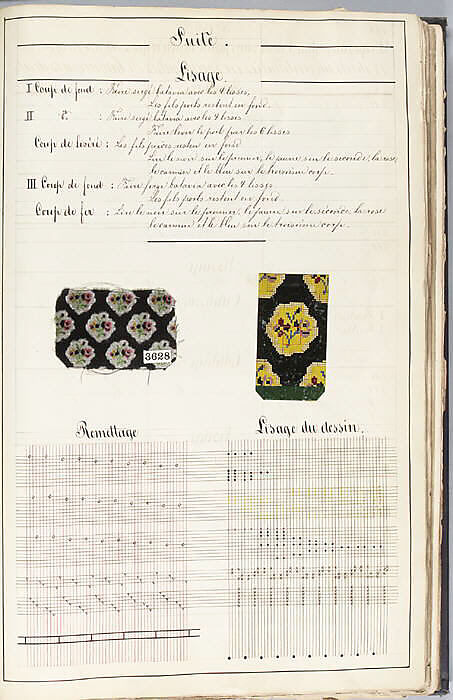 Suite.
Lisage.
I Coup de fond : Faire sergé batavia avec les 4 lisses,
Les fils poils restent en fond.
II d° : Faire sergé batavia avec les 4 lisses
Faire lever le poil par les 6 lisses
Coup de liseré : Les fils pièces restent en fond
Lire le noir sur le premier, le jaune sur le second, la rose,
le carmin et le bleu sur le troisième corp.
III Coup de fond : Faire sergé batavia avec les 4 lisses
Les fils poils restent en fond.
Coup de fer : Lire le noir sur le premier, le jaune sur le second, la rose
le carmin et le bleu sur le troisième corp.
3628
Remettage
Lisage du dessin.